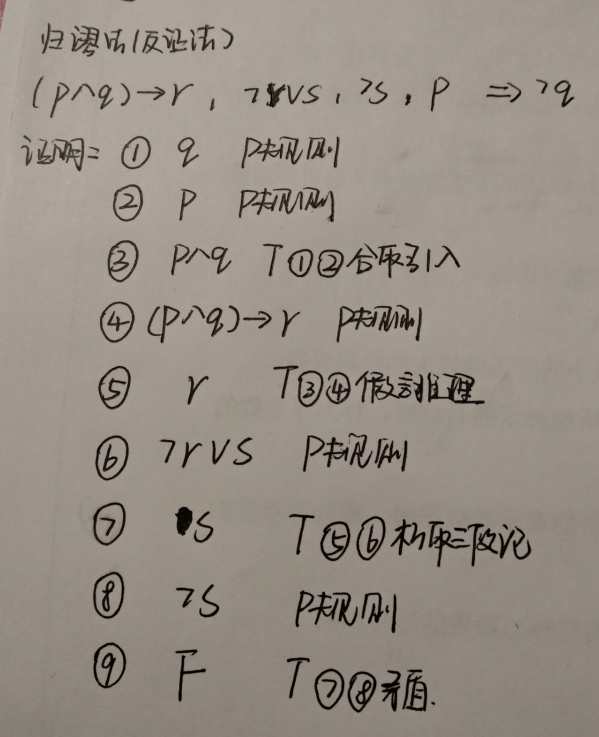 归谬法(反证法)
(p∧q)→r, ¬r∨s, ¬s, p ⇒ ¬q
证明: ① q P规则
② p P规则
③ p∧q T①②合取引入
④ (p∧q)→r P规则
⑤ r T③④假言推理
⑥ ¬r∨s P规则
⑦ s T⑤⑥析取三段论
⑧ ¬s P规则
⑨ F T⑦⑧矛盾.